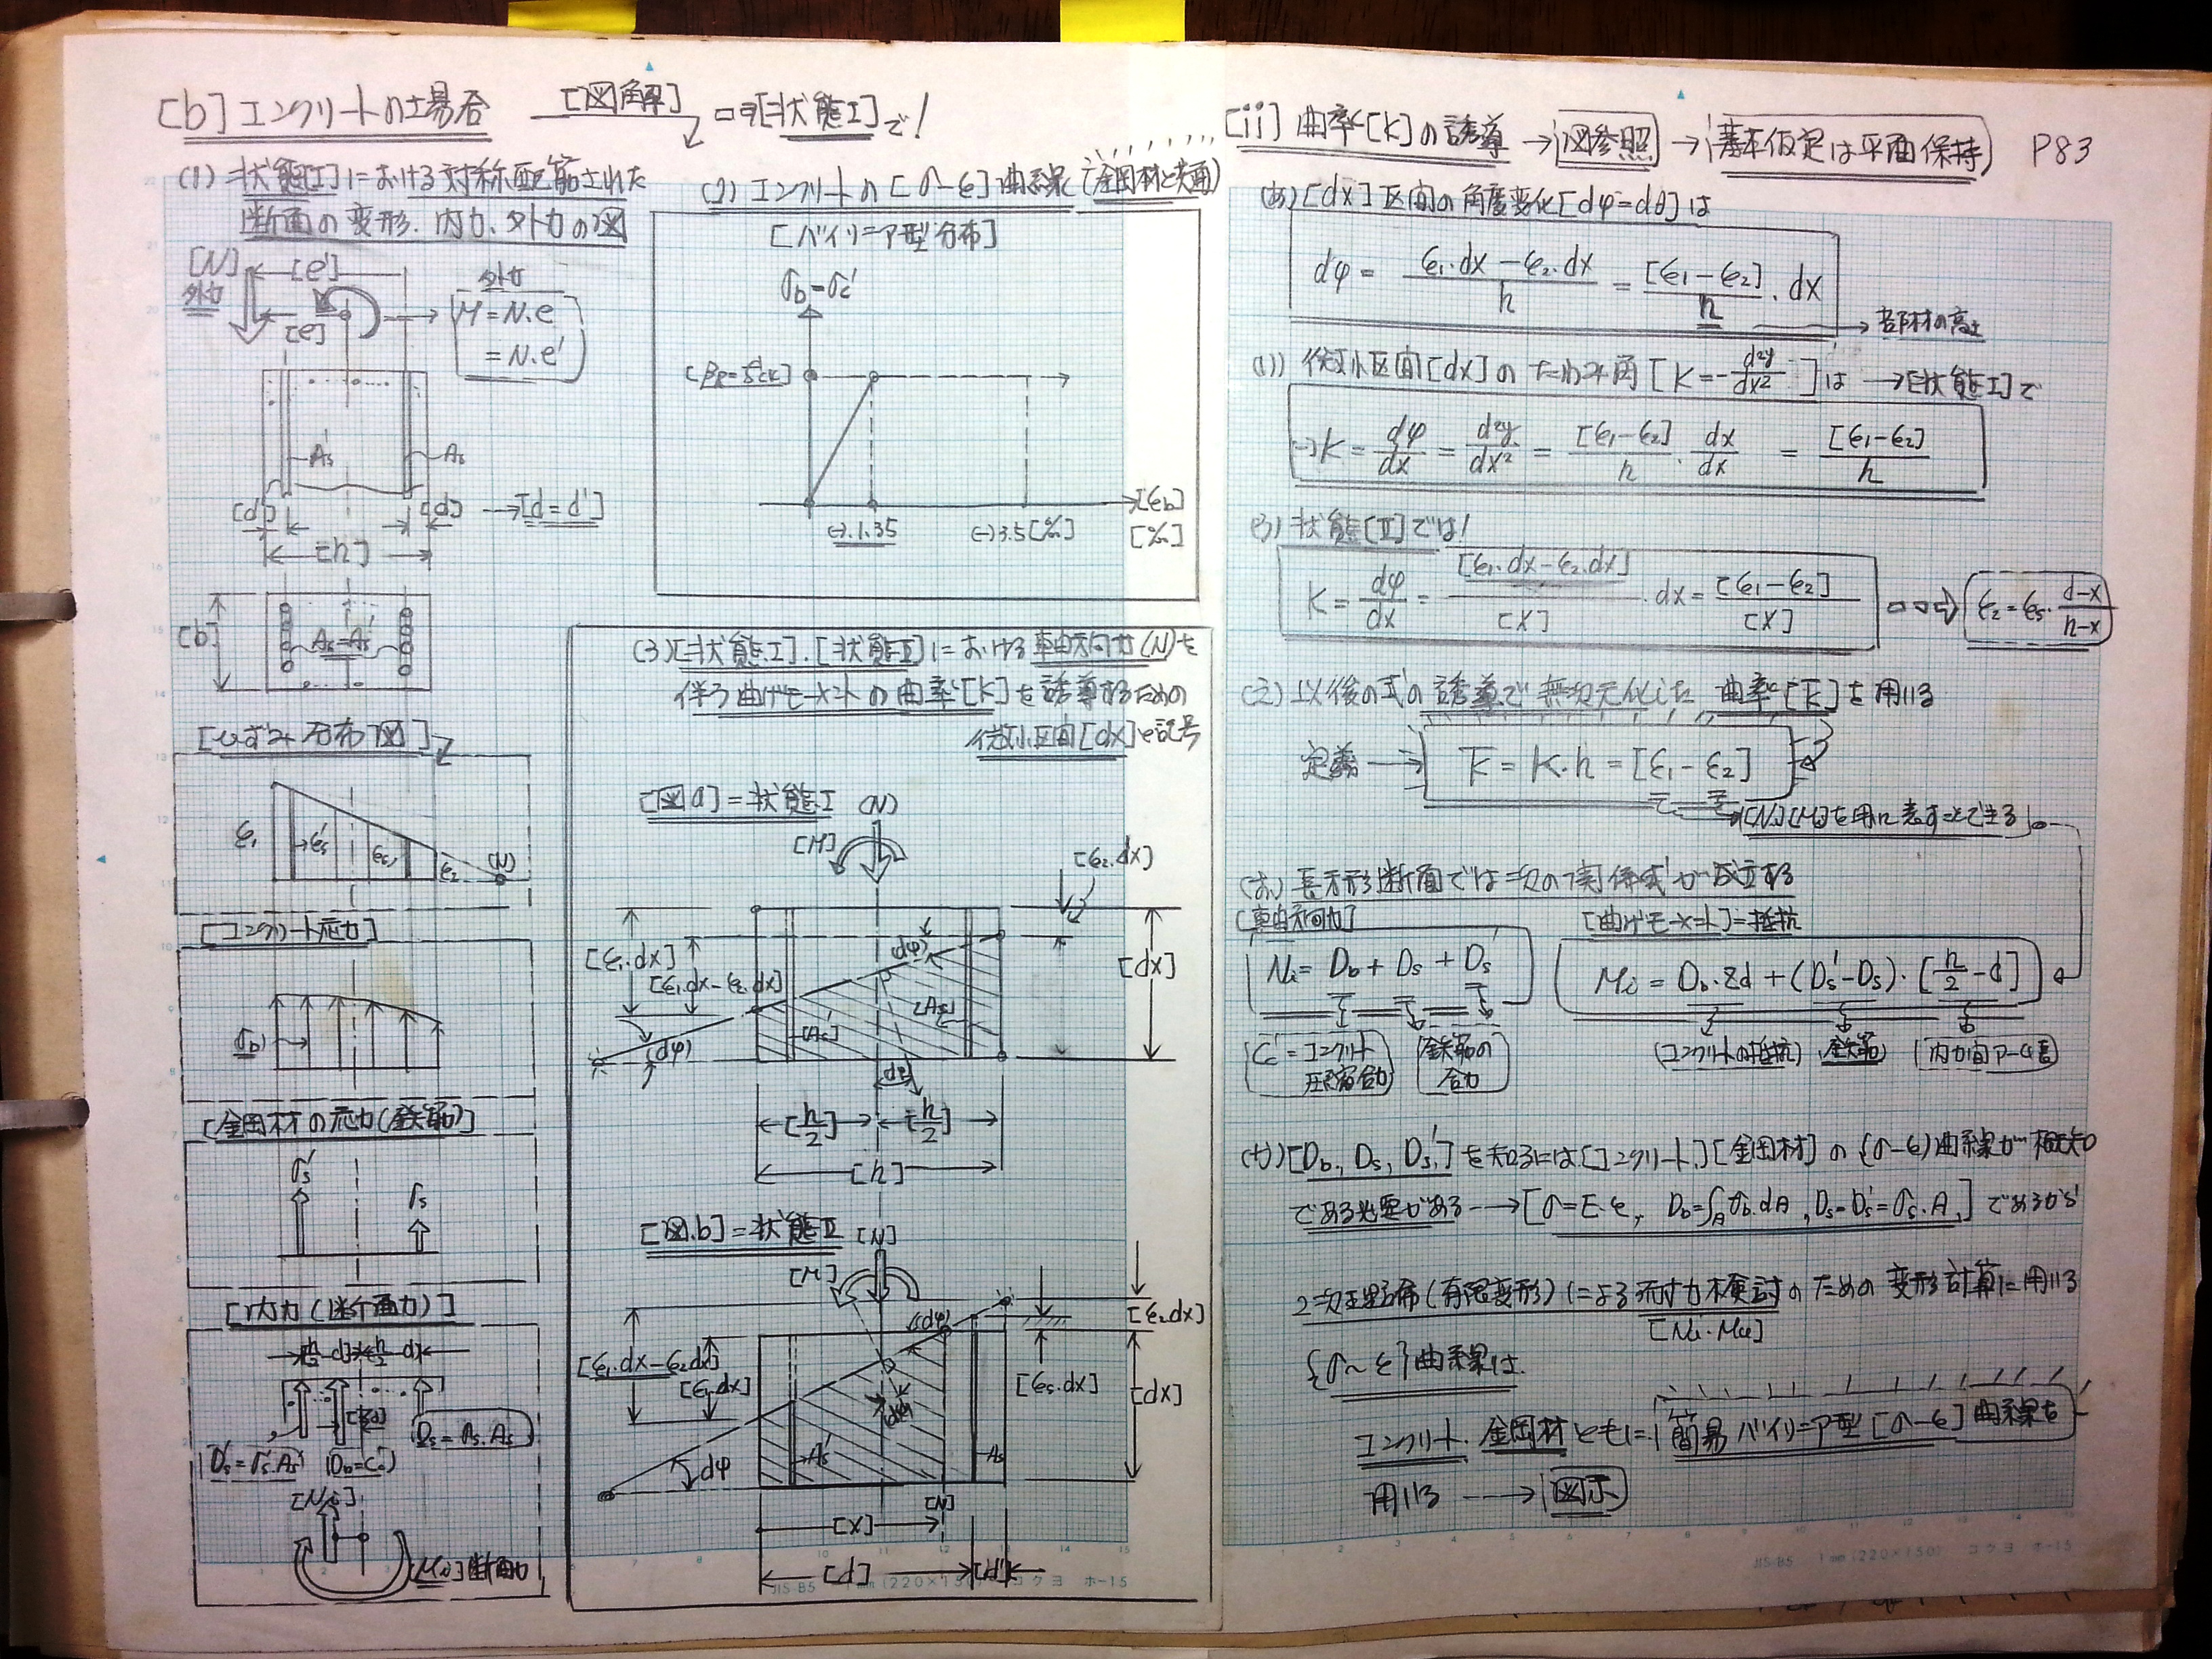 [b] コンクリートの場合 [図解] [状態I]で!
(1) 状態[I]における対称配筋された
断面の変形、内力、外力の図
[N]
外力
[e']
[e]
外力
M=N.e
=N.e'
As'
As
[d']
[d] → [d=d']
[h]
[b]
As=As'
[ひずみ分布図]
ε1
εs'
εs
ε2
(N)
[コンクリート応力]
σb
[金岡材の応力(鉄筋)]
σs'
σs
[内力(断面力)]
Ds=σs.As
Ds'=σs'.As'
(Db=Cc')
[Ni]
[Mi]断面力
(2) コンクリートの[σ-ε]曲線
[バイリニア型分布]
σb=σc'
[εb]
(-)1.35
(-)3.5[‰]
[‰]
(3)[状態I].[状態II]における軸方向力(N)を
伴う曲げモーメントの曲率[K]を誘導するための
微小区間[dx]と記号
[図a]=状態I (N)
[M]
[ε2.dx]
[ε1.dx]
[ε1.dx-ε2.dx]
(dφ)
[As]
[dx]
(dφ)
[h/2]
[h/2]
[h]
[図.b]=状態II [N]
[M]
[ε2dx]
(dφ)
[ε1.dx-ε2dx]
[ε1dx]
[εs.dx]
[dx]
dφ
As'
As
[N]
[x]
[d]
[d']
JIS-B5 1mm(220×150) コクヨ ホ-15
[ii] 曲率[K]の誘導 → 図参照 → 基本仮定は平面保持) P83
(あ)[dx]区間の角度変化[dφ=dθ]は
dφ = ε1.dx-ε2.dx / h = [ε1-ε2] / h . dx
→ 部材の高さ
(い) 微小区間[dx]のたわみ角[K=-d²y/dx²]は → [状態I]で
K = dφ/dx = d²y/dx² = [ε1-ε2]/h . dx/dx = [ε1-ε2]/h
(う) 状態[II]では!
K = dφ/dx = [ε1.dx-ε2.dx]/[x] . dx = [ε1-ε2]/[x] ε2=εs. d-x/h-x
(え) 以後の式の誘導で無次元化した曲率[K̄]を用いる
定義 → K̄ = K.h = [ε1-ε2]
[N][M]を用いて表すことできる
(お) 長方形断面では次の関係式が成立する
[軸方向力] [曲げモーメント]=抵抗
Ni = Db + Ds + Ds'
Mi = Db.zd + (Ds'-Ds).[h/2-d]
Cc'=コンクリート圧縮合力
鉄筋の合力
(コンクリートの抵抗) (鉄筋) (内力間アーム長)
(か)[Db, Ds, Ds']を知るには[コンクリート][金岡材]の{σ-ε}曲線が既知
である必要がある → [σ=E.ε, Db=∫A σb.dA, Ds=Ds'=σs.A,]であるから
2次理論(有限変形)による耐力検討のための変形計算に用いる
[Ni.Mu]
{σ~ε}曲線は
コンクリート、金岡材ともに、簡易バイリニア型[σ-ε]曲線を
用いる → 図示
JIS-B5 1mm(220×150) コクヨ ホ-15